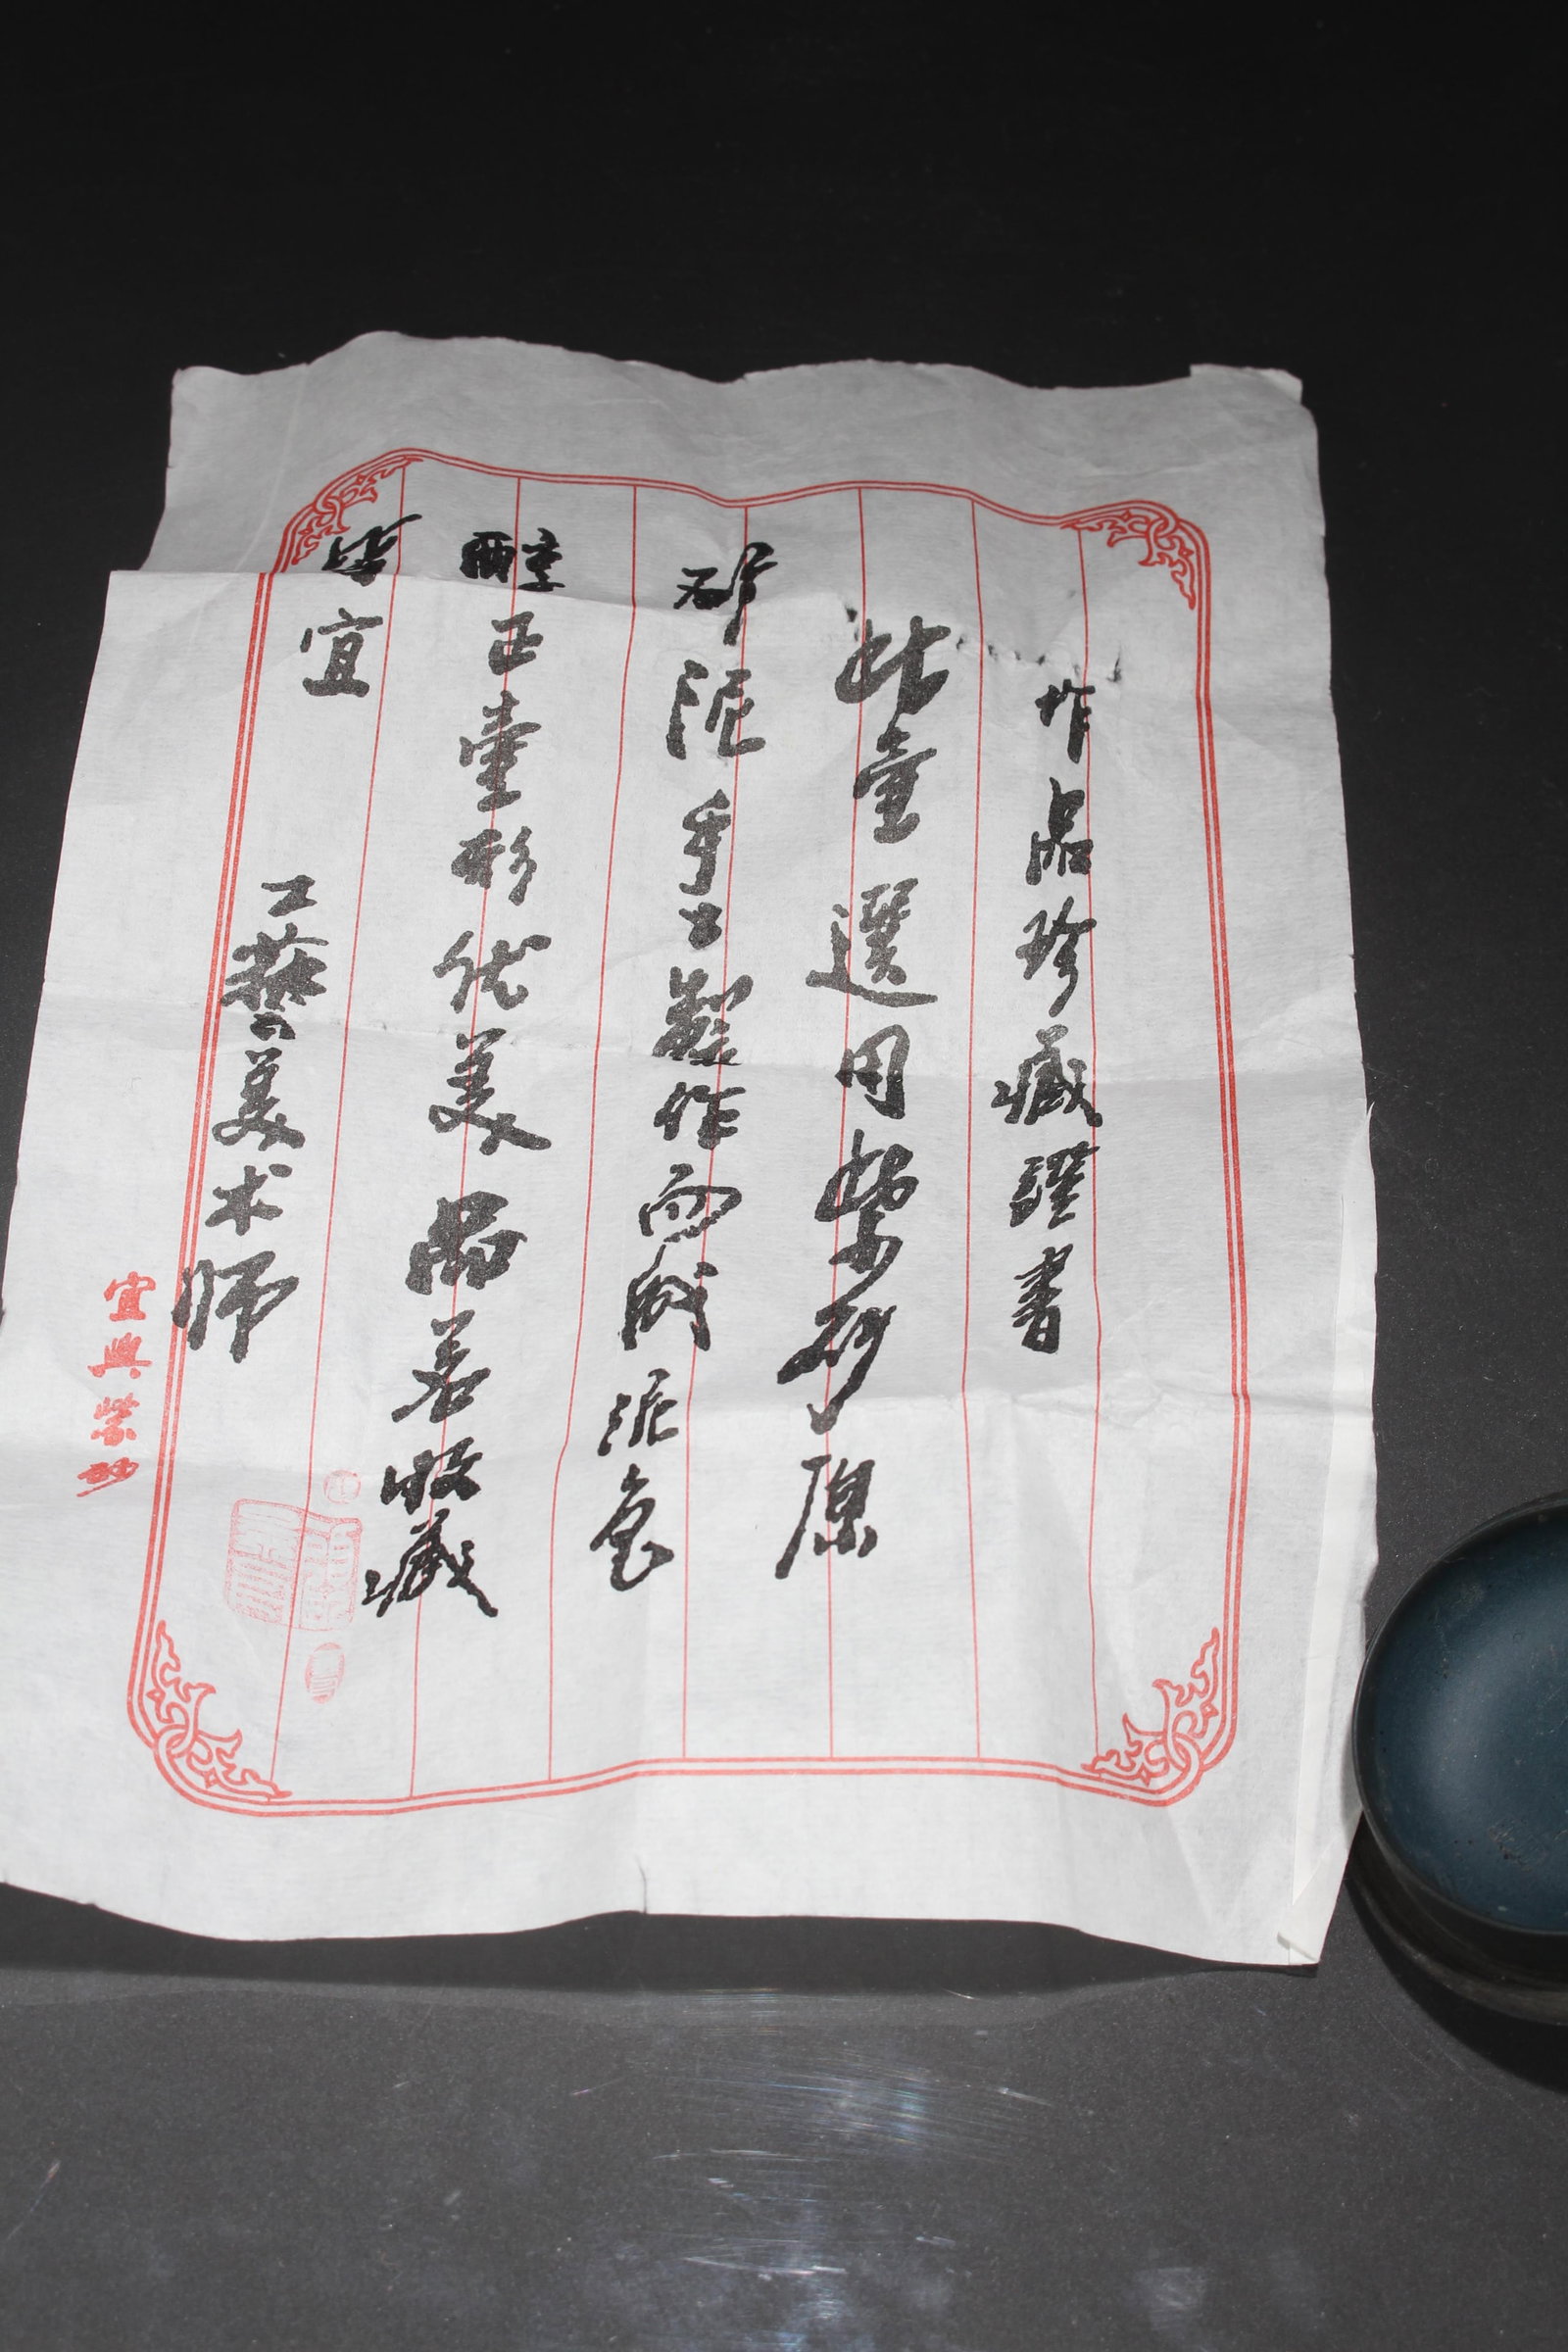 作品珍藏證書
此壺選用紫砂原
矿泥手工製作而成泥色
醇正壺形优美品茗收藏
皆宜
工藝美术师
宜興紫砂